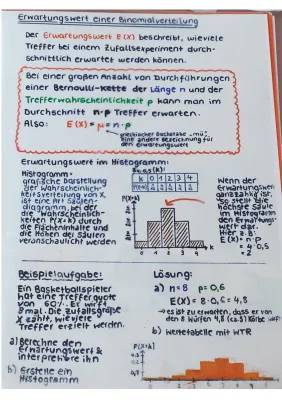 Erwartungswert einer Binomialverteilung
Der Erwartungswert E(X) beschreibt, wieviele
Treffer bei einem Zufallsexperiment durch-
schnittlich erwartet werden können.
Bei einer großen Anzahl von Durchführungen
einer Bernoulli-Kette der Länge n und der
Trefferwahrscheinlichkeit p kann man im
Durchschnitt n·p Treffer erwarten.
Also: E(X) = μ = n·p
griechischer Buchstabe "mü",
eine andere Bezeichnung für
den Erwartungswert
Erwartungswert im Histogramm:
Histogramm =
grafische Darstellung
der Wahrscheinlich-
keitsverteilung von X,
ist eine Art Säulen-
diagramm, bei der
die Wahrscheinlich-
keiten P(X=k) durch
die Flächeninhalte und
die Höhen der Säulen
veranschaulicht werden
k 0 1 2 3 4
P(X=k)
0 1 2 3 4 k
Wenn der
Erwartungswert
ganzzahlig ist,
so stellt die
höchste Säule
im Histogramm
den Erwartungs-
wert dar.
Hier z.B:
E(X) = n·p
= 4·0,5
= 2
Beispielaufgabe:
Ein Basketballspieler
hat eine Trefferquote
von 60%. Er wirft
8 mal. Die Zufallsgröße
X zählt, wieviele
Treffer erzielt werden.
a) Berechne den
Erwartungswert &
interpretiere ihn
b) Erstelle ein
Histogramm
Lösung:
a) n=8 p=0,6
E(X) = 8·0,6 = 4,8
→ es ist zu erwarten, dass er von
den 8 Würfen 4,8 (ca. 5) Körbe
b) Wertetabelle mit WTR
P(X=k)